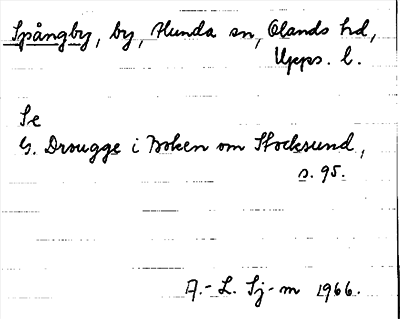 Spångby, by, Hunda sn, Olands hd,
Upps. l.
Se
G. Drougge i Boken om Stocksund,
s. 95.
A.-L. Sj-m 1966.